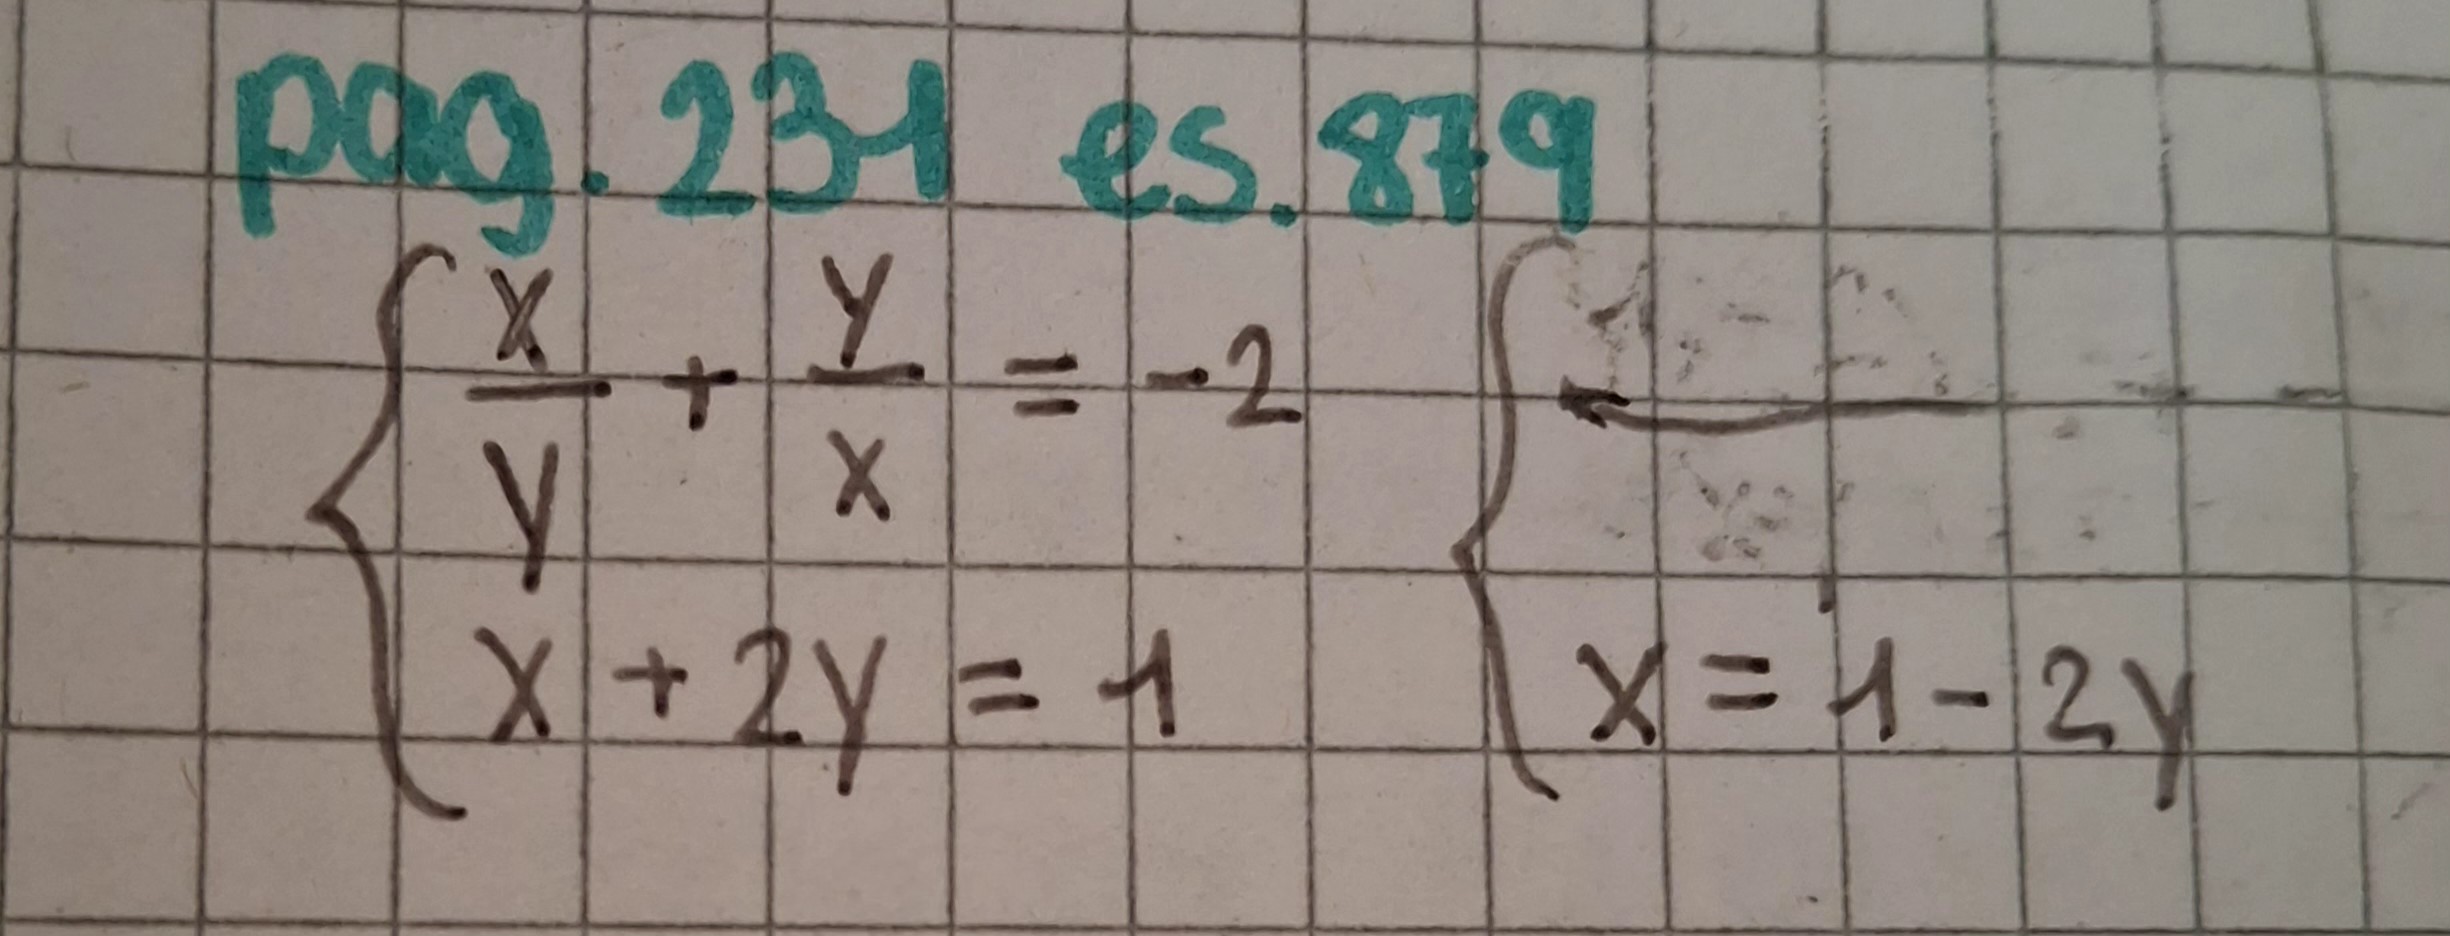 pag. 231 es. 879
x/y + y/x = -2
x + 2y = 1 x = 1 - 2y